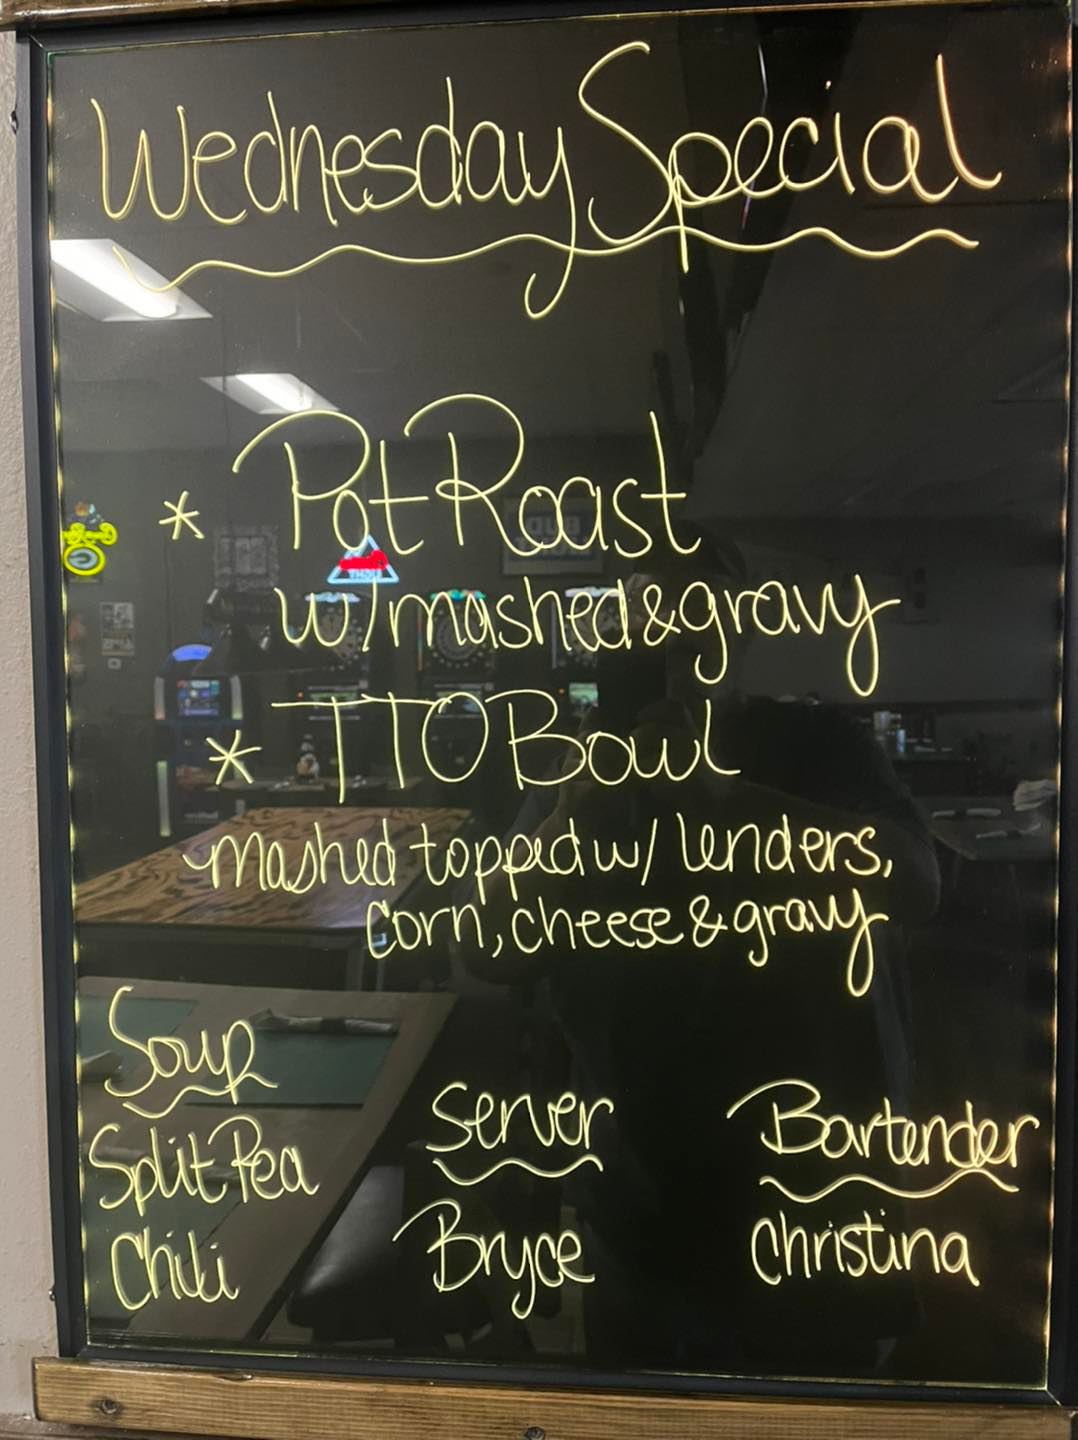 Wednesday Special
* Pot Roast
w/mashed & gravy
* TTO Bowl
mashed topped w/ tenders,
corn, cheese & gravy
Soup
Split Pea
Chili
Server
Bryce
Bartender
Christina